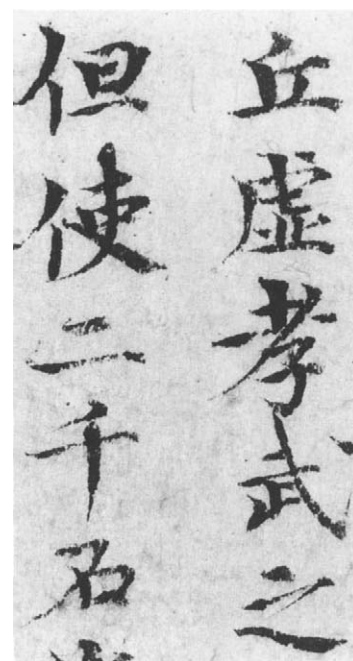 丘虚孝武之
但使二千石